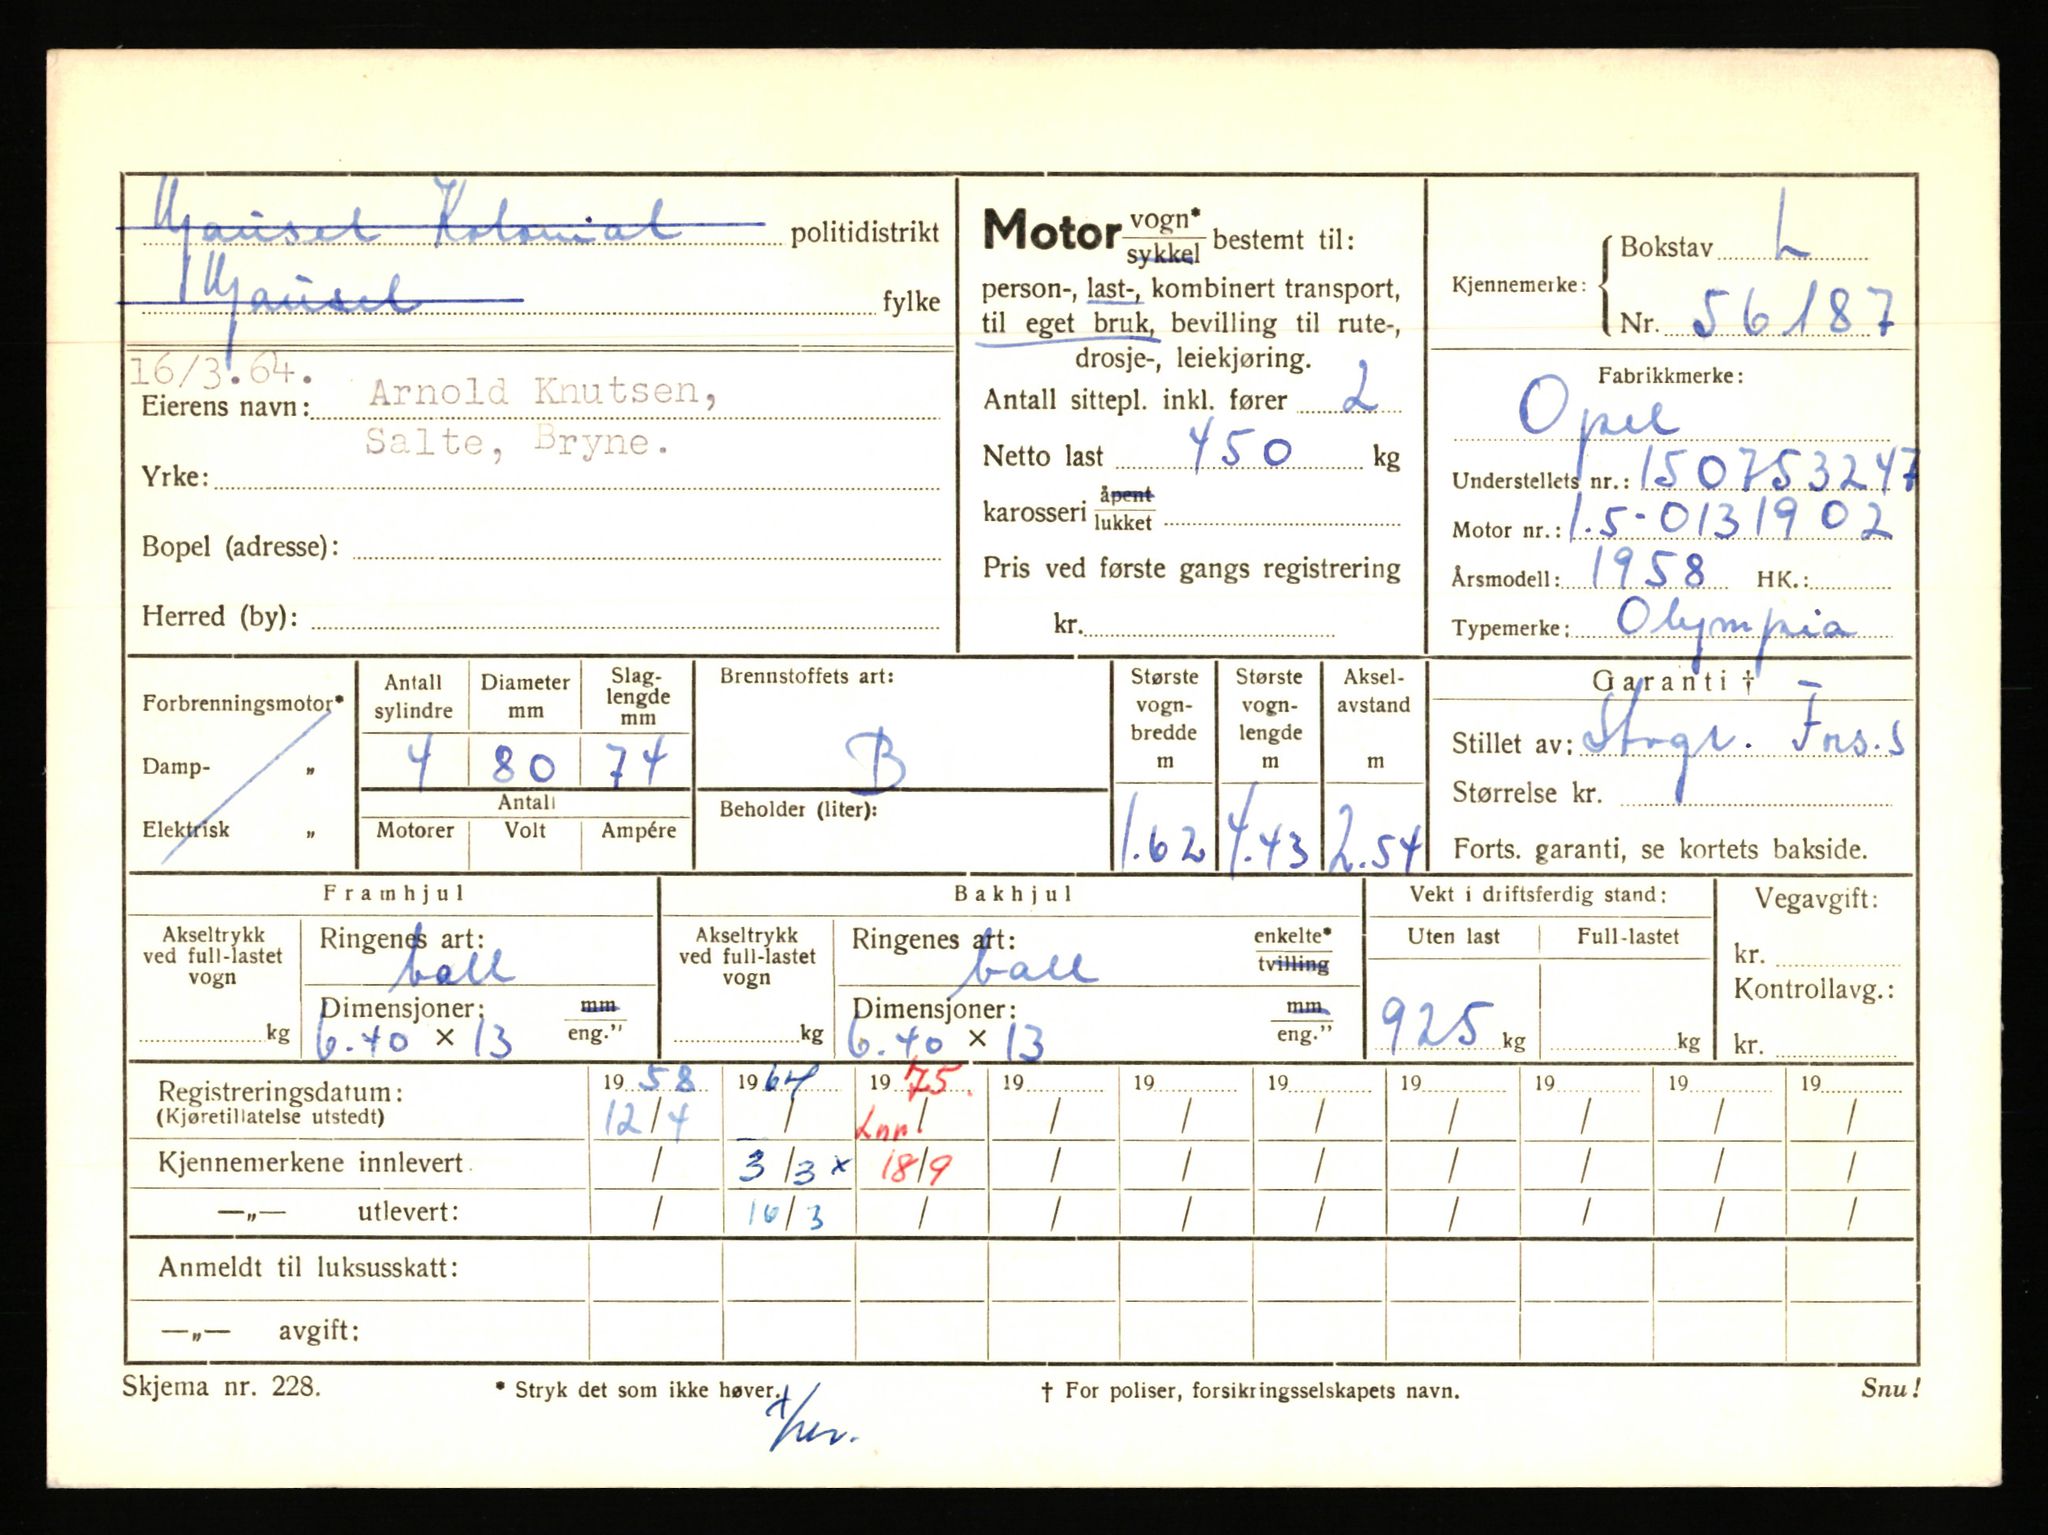 Kolonial politidistrikt
fylke
16/3.64.
Eierens navn: Arnold Knutsen,
Salte, Bryne.
Yrke:
Bopel (adresse):
Herred (by):
Motor vogn* sykkel bestemt til:
person-, last-, kombinert transport,
til eget bruk, bevilling til rute-,
drosje-, leiekjøring.
Antall sittepl. inkl. fører 2
Netto last 450 kg
karosseri åpent lukket
Pris ved første gangs registrering
kr.
Kjennemerke: Bokstav L
Nr. 56187
Fabrikkmerke:
Opel
Understellets nr.: 150753247
Motor nr.: 1.5-0131902
Årsmodell: 1958 HK.:
Typemerke: Olympia
Forbrenningsmotor*
Damp- „
Elektrisk „
Antall sylindre Diameter mm Slag-lengde mm
4 80 74
Antall
Motorer Volt Ampére
Brennstoffets art:
B
Beholder (liter):
Største vogn-bredde m Største vogn-lengde m Aksel-avstand m
1.62 4.43 2.54
Garanti †
Stillet av: Fors.s
Størrelse kr.
Forts. garanti, se kortets bakside.
Framhjul
Akseltrykk ved full-lastet vogn
kg
Ringenes art:
ball
Dimensjoner: mm
6.40 × 13 eng.”
Bakhjul
Akseltrykk ved full-lastet vogn
kg
Ringenes art: enkelte*
ball tvilling
Dimensjoner: mm
6.40 × 13 eng.”
Vekt i driftsferdig stand:
Uten last Full-lastet
925 kg kg
Vegavgift:
kr.
Kontrollavg.:
kr.
Registreringsdatum: 19 58 19 64 19 75. 19 19 19 19 19 19 19
(Kjøretillatelse utstedt) 12/4 / Lnr. / / / / / / / /
Kjennemerkene innlevert / 3/3 x 18/9 / / / / / / /
—„— utlevert: / 16/3 / / / / / / / /
Anmeldt til luksusskatt:
—„— avgift:
Skjema nr. 228. * Stryk det som ikke høver. † For poliser, forsikringsselskapets navn. Snu!